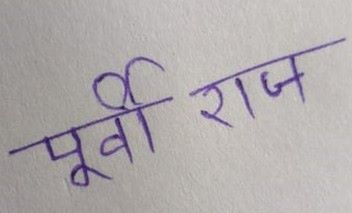 पूर्वी राज